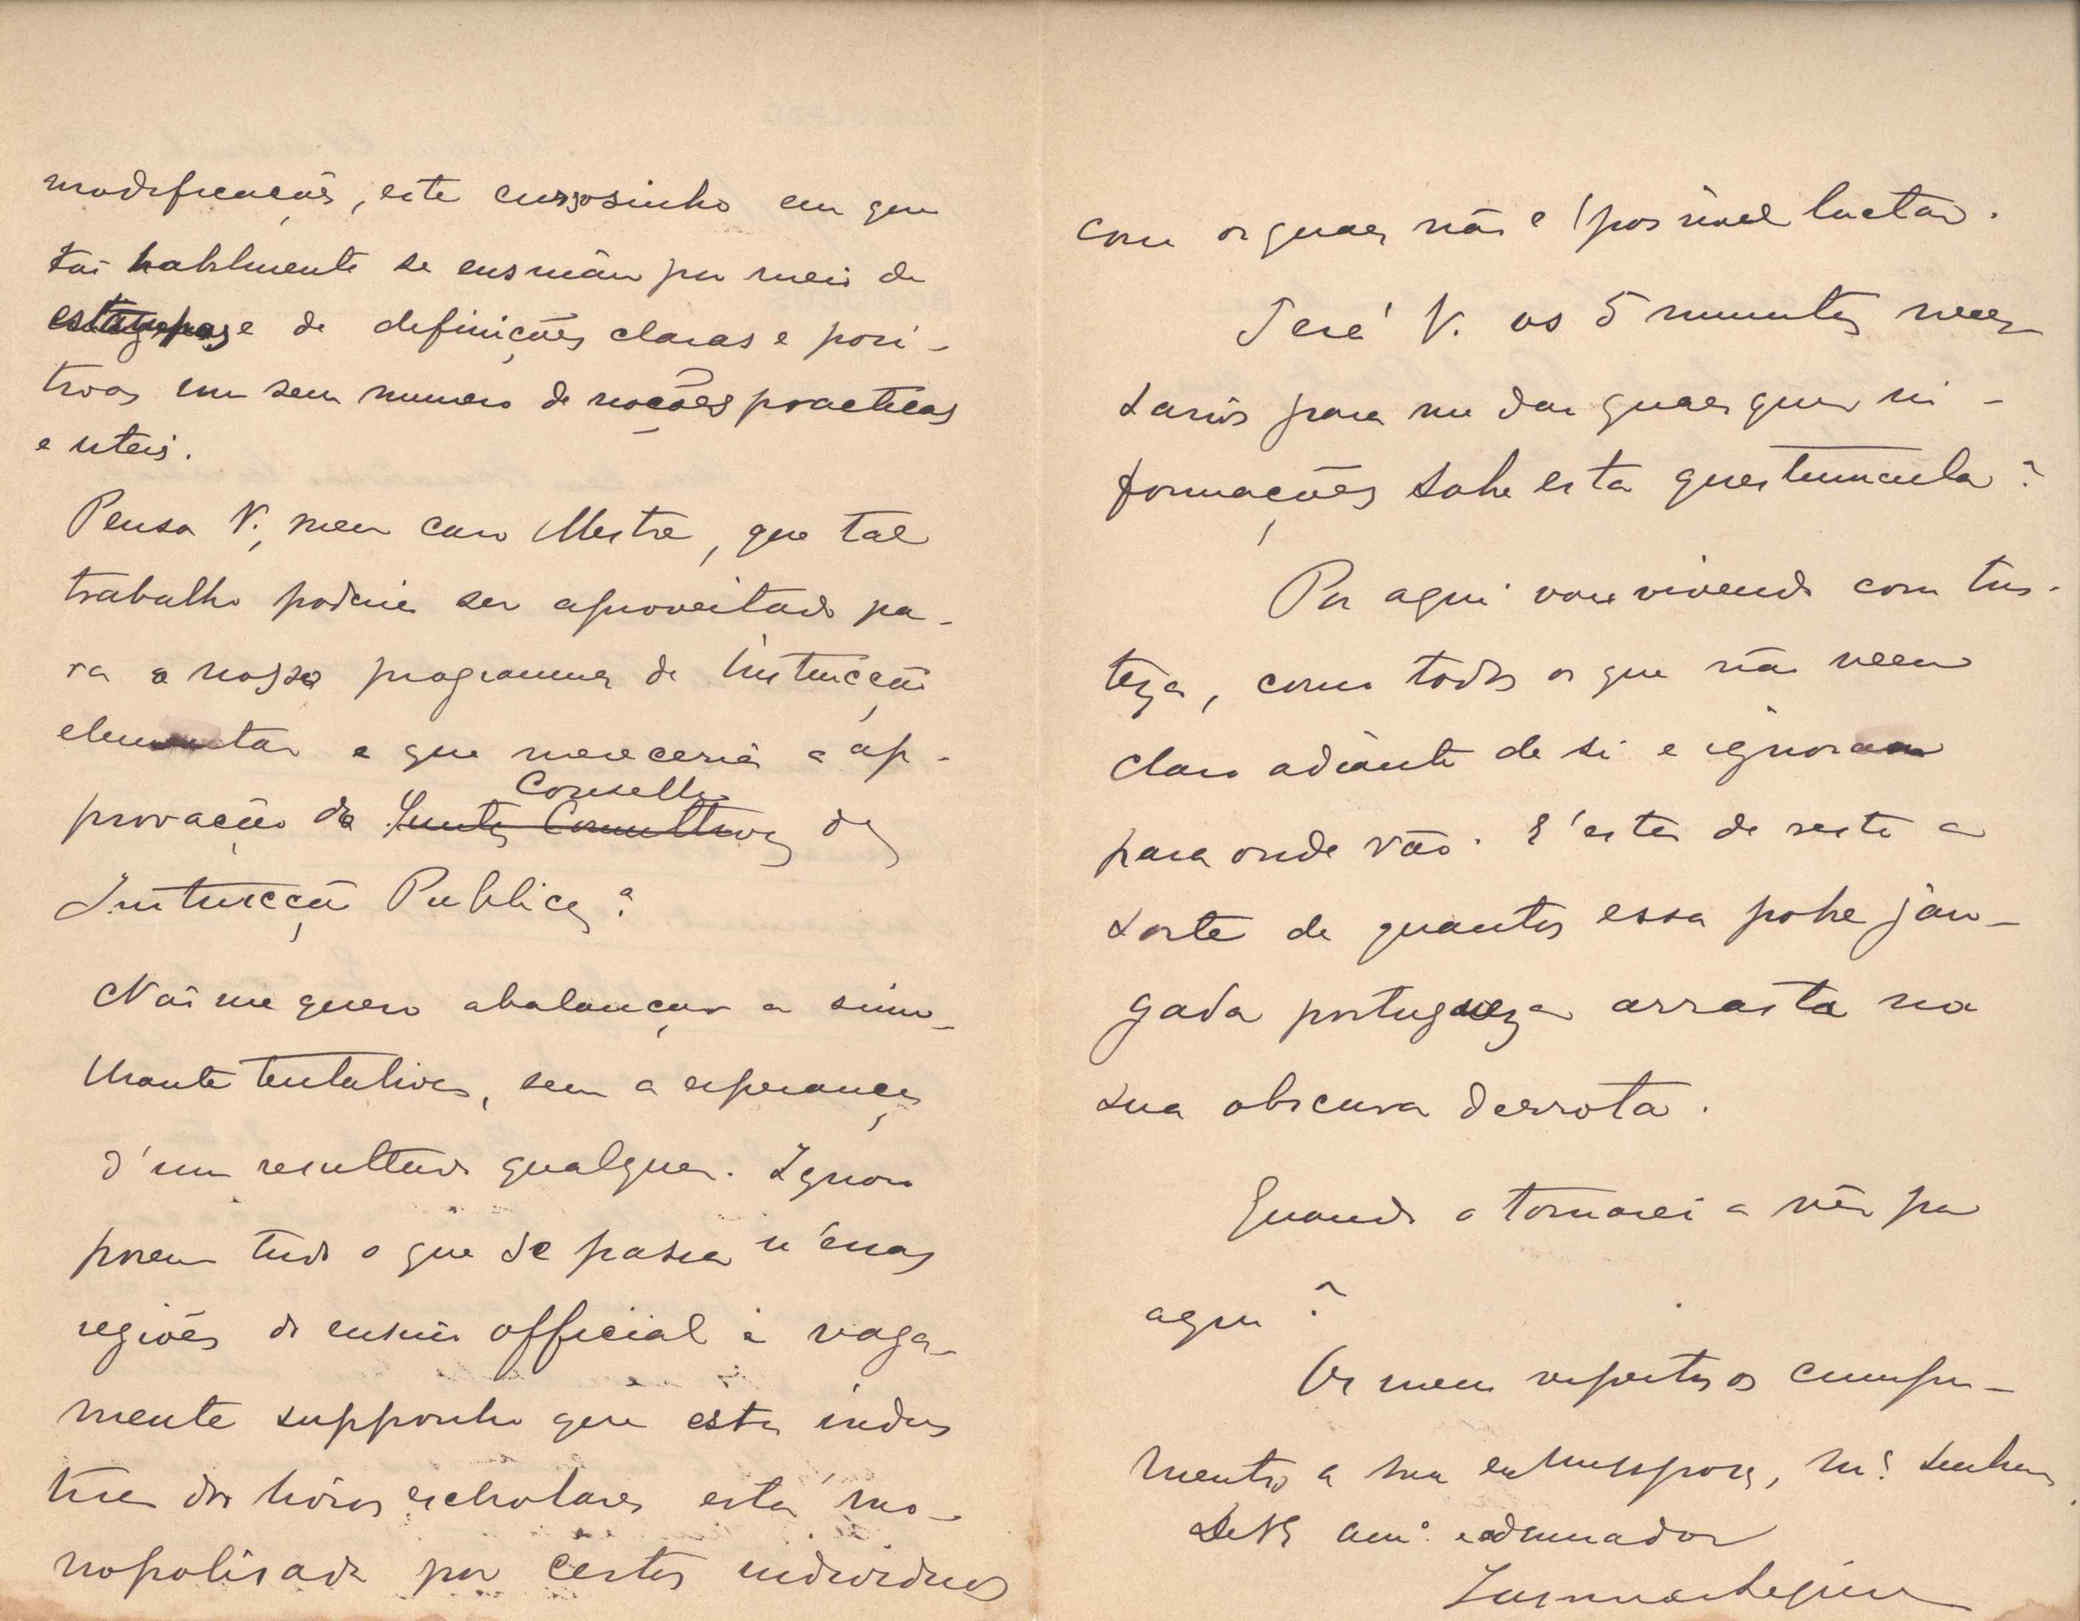 modificações, este cursosinho em que
tão habilmente se ensinão por meio de
estampas e de definições claras e posi-
tivas um sem numero de noções practicas
e uteis.
Pensa V., meu caro Mestre, que tal
trabalho poderia ser aproveitado pa-
ra o nosso programma de Instrucção
elementar e que mereceria a ap-
provação do Junta Consultiva Conselho da
Instrucção Publica?
Não me quero abalançar a simi-
lhante tentativa, sem a esperança
d'um resultado qualquer. Ignoro
porem tudo o que se passa n'essas
regiões do ensino official e vaga-
mente supponho que esta indus
tria dos livros escholares está mo-
nopolisada por certos individuos
com os quaes não é possivel luctar.
Terá V. os 5 minutos neces
sarios para me dar quaesquer in-
formações sobre esta questiuncula?
Por aqui vou vivendo com tris-
teza, como todos os que não veem
claro adiante de si e ignoram
para onde vão. E' esta de resto a
sorte de quantos essa pobre jan-
gada portugueza arrasta na
sua obscura derrota.
Quando o tornarei a vêr por
aqui?
Os meus respeitosos cumpri-
mentos a sua esposa, m.ª senhora
De V. am.º e admirador